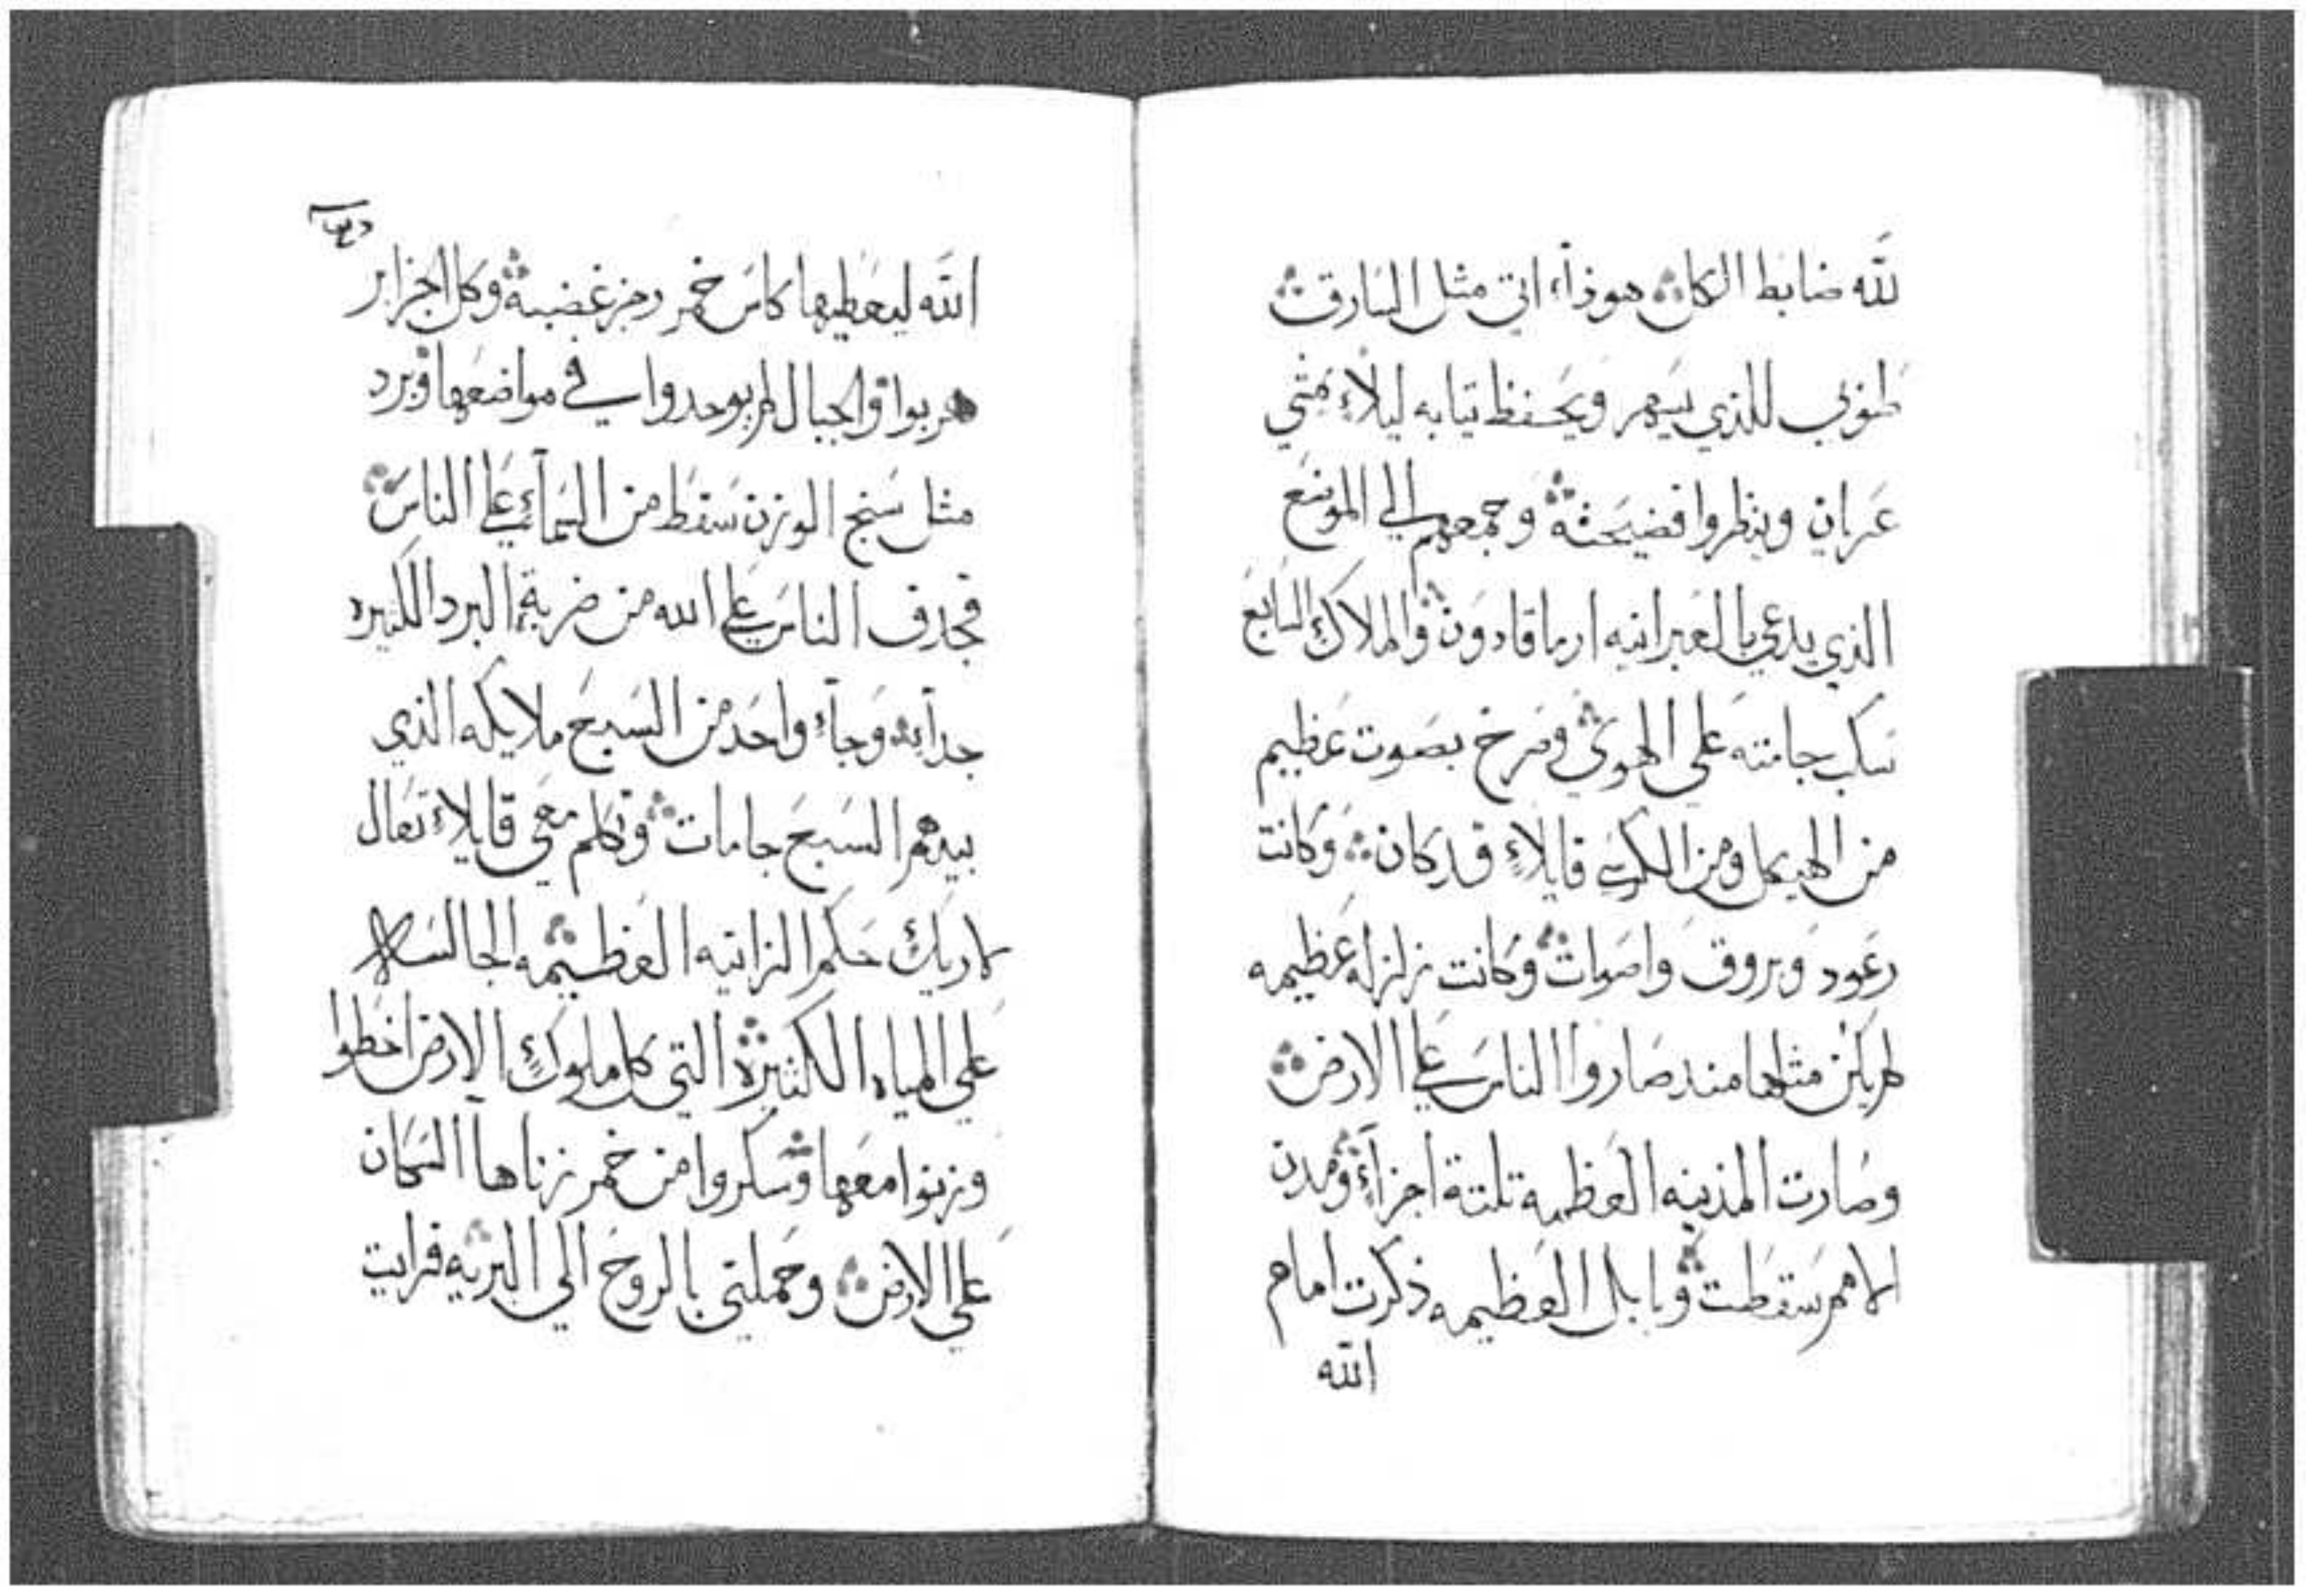 لله ضابط الكل هوذا اتي مثل السارق
طوبي للذي يسهر ويحفظ تيابه ليلاء يمشي
عريان وينظروا فضيحته وجمعهم الي الموضع
الذي يدعي بالعبرانيه ارماقادون والملاك السابع
سكب جامته علي الهوي وصرخ بصوت عظيم
من الهيكل ومن الكرسي قايلاء قد كان وكانت
رعود وبروق واصوات وكانت زلزله عظيمه
لم يكن مثلها مند صاروا الناس علي الارض
وصارت المدينه العظيمه تلتة اجزاء ومدن
الامم سقطت وبابل العظيمه ذكرت امام
الله
الله ليعطيها كاس خمر رجز غضبه وكل الجزاير
هربوا والجبال لم يوجدوا في مواضعها وبرد
مثل سنج الوزن سقط من السماء علي الناس
فجدف الناس علي الله من ضربة البرد الكثيره
جدا وجاء واحد من السبع ملايكه الذي
بيدهم السبع جامات وتكلم معي قايلاء تعال
لاريك حكم الزانيه العظيمه الجالسه
علي المياه الكثيرة التي كل ملوك الارض اخطوا
وزنوا معها وسكروا من خمر زناها السكان
علي الارض وحملتي بالروح الي البريه فرايت